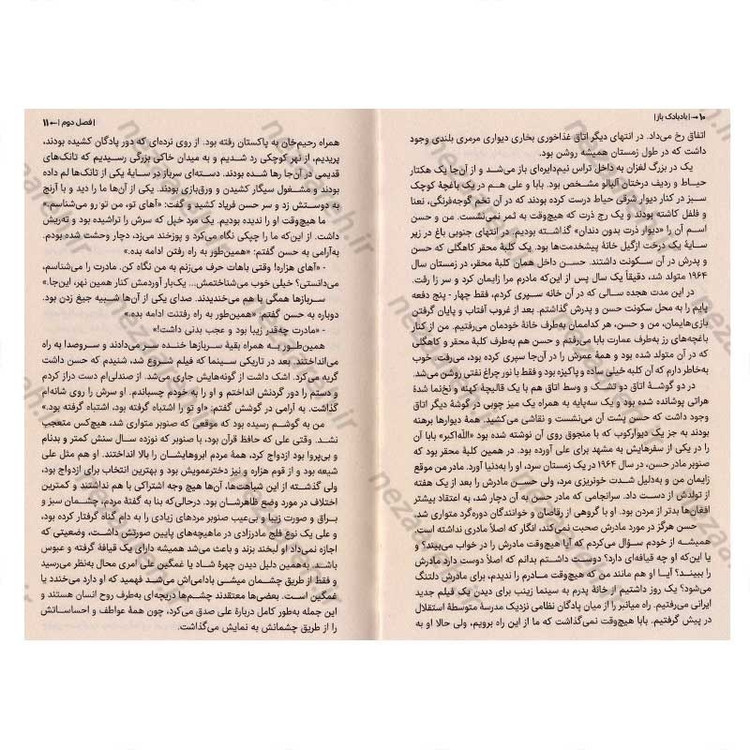 ۱۰ → |بادبادک باز|
اتفاق رخ می‌داد. در انتهای دیگر اتاق غذاخوری بخاری دیواری مرمری بلندی وجود
داشت که در طول زمستان همیشه روشن بود.
یک در بزرگ لغزان به داخل تراس نیم‌دایره‌ای باز می‌شد و از آن‌جا یک هکتار
حیاط و ردیف درختان آلبالو مشخص بود. بابا و علی هم در یک باغچهٔ کوچک
سبز در کنار دیوار شرقی حیاط درست کرده بودند که در آن تخم گوجه‌فرنگی، نعنا
و فلفل کاشته بودند و یک رج ذرت که هیچ‌وقت به ثمر نمی‌نشست. من و حسن
اسم آن را «دیوار ذرت بدون دندان» گذاشته بودیم. در انتهای جنوبی باغ در زیر
سایهٔ یک درخت ازگیل خانهٔ پیشخدمت‌ها بود. یک کلبهٔ محقر کاهگلی که حسن
و پدرش در آن سکونت داشتند. حسن داخل همان کلبهٔ محقر، در زمستان سال
۱۹۶۴ متولد شد، دقیقاً یک سال پس از این‌که مادرم مرا زایمان کرد و سر زا رفت.
در این مدت هجده سالی که در آن خانه سپری کردم، فقط چهار - پنج دفعه
پایم را به محل سکونت حسن و پدرش گذاشتم. بعد از غروب آفتاب و پایان گرفتن
بازی‌هایمان، من و حسن، هر کداممان به‌طرف خانهٔ خودمان می‌رفتیم. من از کنار
باغچه‌های رز به‌طرف عمارت بابا می‌رفتم و حسن هم به‌طرف کلبهٔ محقر و کاهگلی
که در آن متولد شده بود و همهٔ عمرش را در آن‌جا سپری کرده بود، می‌رفت. خوب
به‌خاطر دارم که آن کلبه خیلی ساده و پاکیزه بود و فقط با نور چراغ نفتی روشن می‌شد.
در دو گوشهٔ اتاق دو تشک و وسط اتاق هم با یک قالیچهٔ کهنه و نخ‌نما شدهٔ
هراتی پوشانده شده بود و یک سه‌پایه به همراه یک میز چوبی در گوشهٔ دیگر اتاق
وجود داشت که حسن پشت آن می‌نشست و نقاشی می‌کشید. همهٔ دیوارها برهنه
بودند به جز یک دیوارکوب که با منجوق روی آن نوشته شده بود «الله‌اکبر» بابا آن
را در یکی از سفرهایش به مشهد برای علی آورده بود. در همین کلبهٔ محقر بود که
صنوبر مادر حسن، در سال ۱۹۶۴ در یک زمستان سرد، او را به‌دنیا آورد. مادر من موقع
زایمان من و به‌دلیل شدت خونریزی مرد، ولی حسن مادرش را بعد از یک هفته
از تولدش از دست داد. سرانجامی که مادر حسن به آن دچار شد، به اعتقاد بیشتر
افغان‌ها بدتر از مردن بود. او با گروهی از رقاصان و خوانندگان دوره‌گرد متواری شد.
حسن هرگز در مورد مادرش صحبت نمی‌کند، انگار که اصلاً مادری نداشته است.
همیشه از خودم سؤال می‌کردم که آیا هیچ‌وقت مادرش را در خواب می‌بیند؟ و
یا این‌که او چه قیافه‌ای دارد؟ دوست داشتم بدانم که اصلاً دوست دارد مادرش
را ببیند؟ آیا او هم مانند من که هیچ‌وقت مادرم را ندیدم، برای مادرش دلتنگ
می‌شود؟ یک روز داشتیم از خانهٔ پدرم به سینما زینب برای دیدن یک فیلم جدید
ایرانی می‌رفتیم. راه میانبر را از میان پادگان نظامی نزدیک مدرسهٔ متوسطهٔ استقلال
در پیش گرفتیم. بابا هیچ‌وقت نمی‌گذاشت که ما از این راه برویم، ولی حالا او به
|فصل دوم| ← ۱۱
همراه رحیم‌خان به پاکستان رفته بود. از روی نرده‌ای که دور پادگان کشیده بودند،
پریدیم، از نهر کوچکی رد شدیم و به میدان خاکی بزرگی رسیدیم که تانک‌های
قدیمی در آن‌جا رها شده بودند. دسته‌ای سرباز در سایهٔ یکی از تانک‌ها لم داده
بودند و مشغول سیگار کشیدن و ورق‌بازی بودند. یکی از آن‌ها ما را دید و با آرنج
به دوستش زد و سر حسن فریاد کشید و گفت: «آهای تو، من تو رو می‌شناسم.»
ما هیچ‌وقت او را ندیده بودیم. یک مرد خپل که سرش را تراشیده بود و ته‌ریش
داشت. از این‌که ما را چپکی نگاه می‌کرد و پوزخند می‌زد، دچار وحشت شده بودم.
به‌آرامی به حسن گفتم: «همین‌طور به راه رفتن ادامه بده.»
- «آهای هزاره! وقتی باهات حرف می‌زنم به من نگاه کن. مادرت را می‌شناسم،
می‌دانستی؟ خیلی خوب می‌شناختمش... یک‌بار آوردمش کنار همین نهر، این‌جا.»
سربازها همگی با هم می‌خندیدند. صدای یکی از آن‌ها شبیه جیغ زدن بود.
دوباره به حسن گفتم: «همین‌طور به راه رفتنت ادامه بده.»
- «مادرت چه‌قدر زیبا بود و عجب بدنی داشت!»
همین‌طور به همراه بقیهٔ سربازها خنده سر می‌دادند و سروصدا به راه
می‌انداختند. بعد در تاریکی سینما که فیلم شروع شد، شنیدم که حسن داشت
گریه می‌کرد. اشک داشت از گونه‌هایش جاری می‌شد. از صندلی‌ام دست دراز کردم
و دستم را دور گردنش انداختم و او را به خودم چسباندم. او سرش را روی شانه‌ام
گذاشت. به آرامی در گوشش گفتم: «او تو را اشتباه گرفته بود، اشتباه گرفته بود.»
من به گوشم رسیده بود که موقعی که صنوبر متواری شد، هیچ‌کس متعجب
نشد. وقتی علی که حافظ قرآن بود، با صنوبر که نوزده سال سنش کمتر و بدنام
و بی‌پروا بود ازدواج کرد، همهٔ مردم ابروهایشان را بالا انداختند. او هم مثل علی
شیعه بود و از قوم هزاره و نیز دخترعمویش بود و بهترین انتخاب برای ازدواج بود،
ولی گذشته از این شباهت‌ها، آن‌ها هیچ وجه اشتراکی با هم نداشتند و کمترین
اختلاف در مورد وضع ظاهرشان بود. درحالی‌که بنا به گفتهٔ مردم، چشمان سبز و
براق و صورت زیبا و بی‌عیب صنوبر مردهای زیادی را به دام گناه گرفتار کرده بود،
و علی یک نوع فلج مادرزادی در ماهیچه‌های پایین صورتش داشت، وضعیتی که
اجازه نمی‌داد او لبخند بزند و باعث می‌شد همیشه دارای یک قیافهٔ گرفته و عبوس
باشد. به‌همین دلیل دیدن چهرهٔ شاد یا غمگین علی امری محال به‌نظر می‌رسید
و فقط از طریق چشمان میشی بادامی‌اش می‌شد فهمید که او دارد می‌خندد یا
غمگین است. بعضی‌ها معتقدند چشم‌ها دریچه‌ای به‌طرف روح انسان هستند و
این جمله به‌طور کامل دربارهٔ علی صدق می‌کرد، چون همهٔ عواطف و احساساتش
را از طریق چشمانش به نمایش می‌گذاشت.